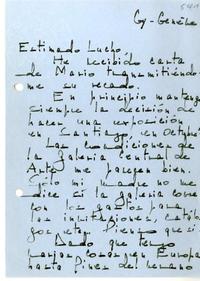 Gy - Genève
Estimado Lucho,
He recibido carta
de Mario transmitiéndo-
me su recado.
En principio mantengo
siempre la decisión de
hacer una exposición
en Santiago, en Octubre
Las condiciones de
la galería Central de
Arte me parecen bien.
Sólo mi madre no me
dice si la galería corre
con los gastos para
las invitaciones, catálo-
gos, etc. Pienso que sí.
Dado que tengo
varias cosas en Europa
hasta fines del verano